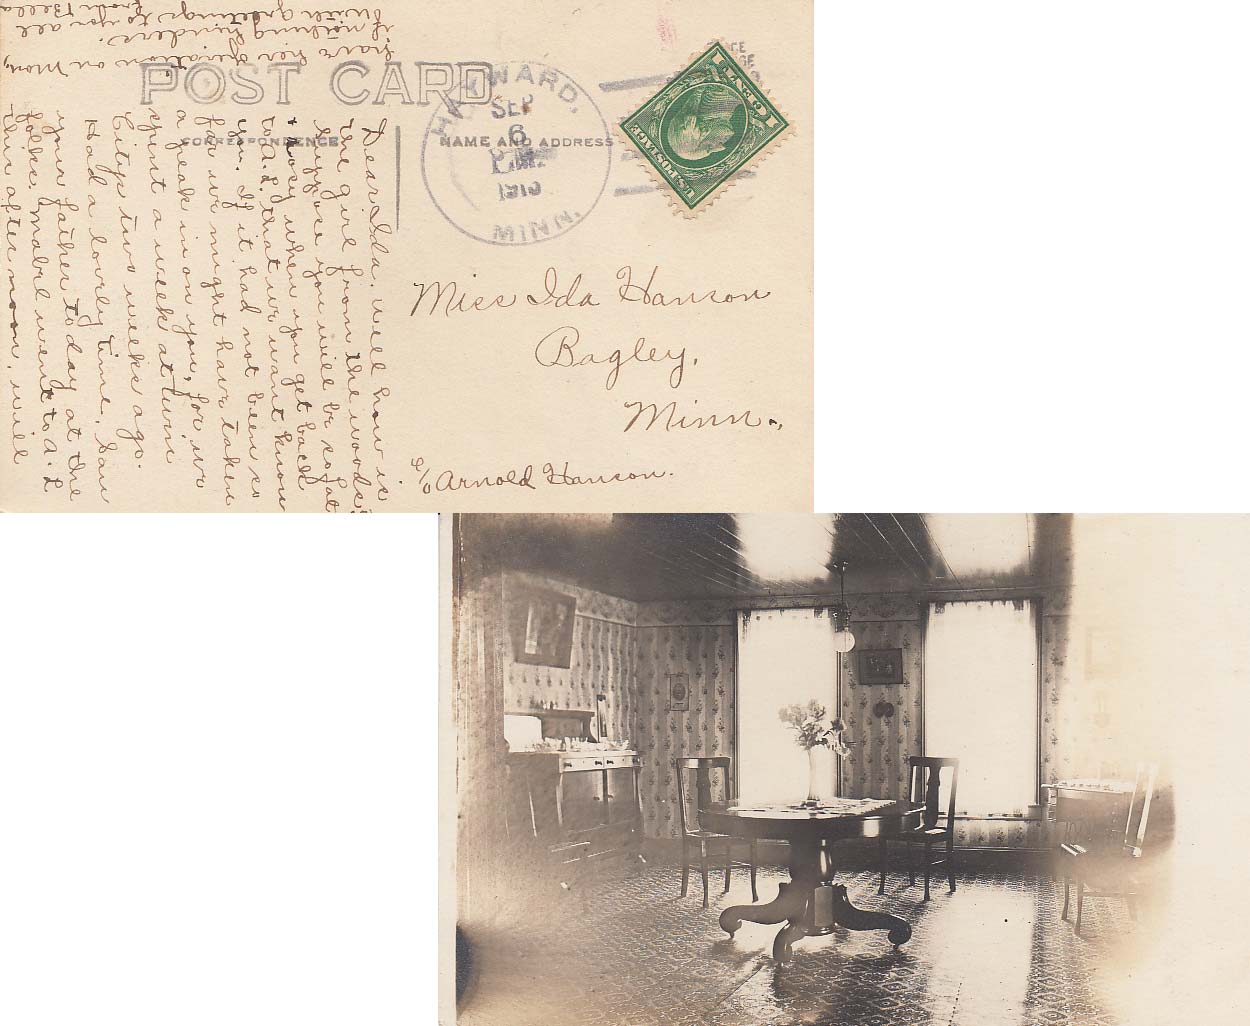 POST CARD
CORRESPONDENCE
NAME AND ADDRESS
HAYWARD,
SEP
6
P.M.
1913
MINN.
U.S. POSTAGE
Miss Ida Hanson
Bagley,
Minn.,
c/o Arnold Hanson.
Dear Ida. well how is
the girl from the woods?
Suppose you will be so fat
& rosy when you get back
to A.L. that we want know
you. If it had not been so
far we might have taken
a peak in on you, for we
spent a week at Twin
Citys two weeks ago.
Had a lovely time. Saw
your father today at the
folks. Mabel went to A. L
this afternoon, will
have her operation on Mon,
if nothing hinders.
With greetings to you all
from Bella